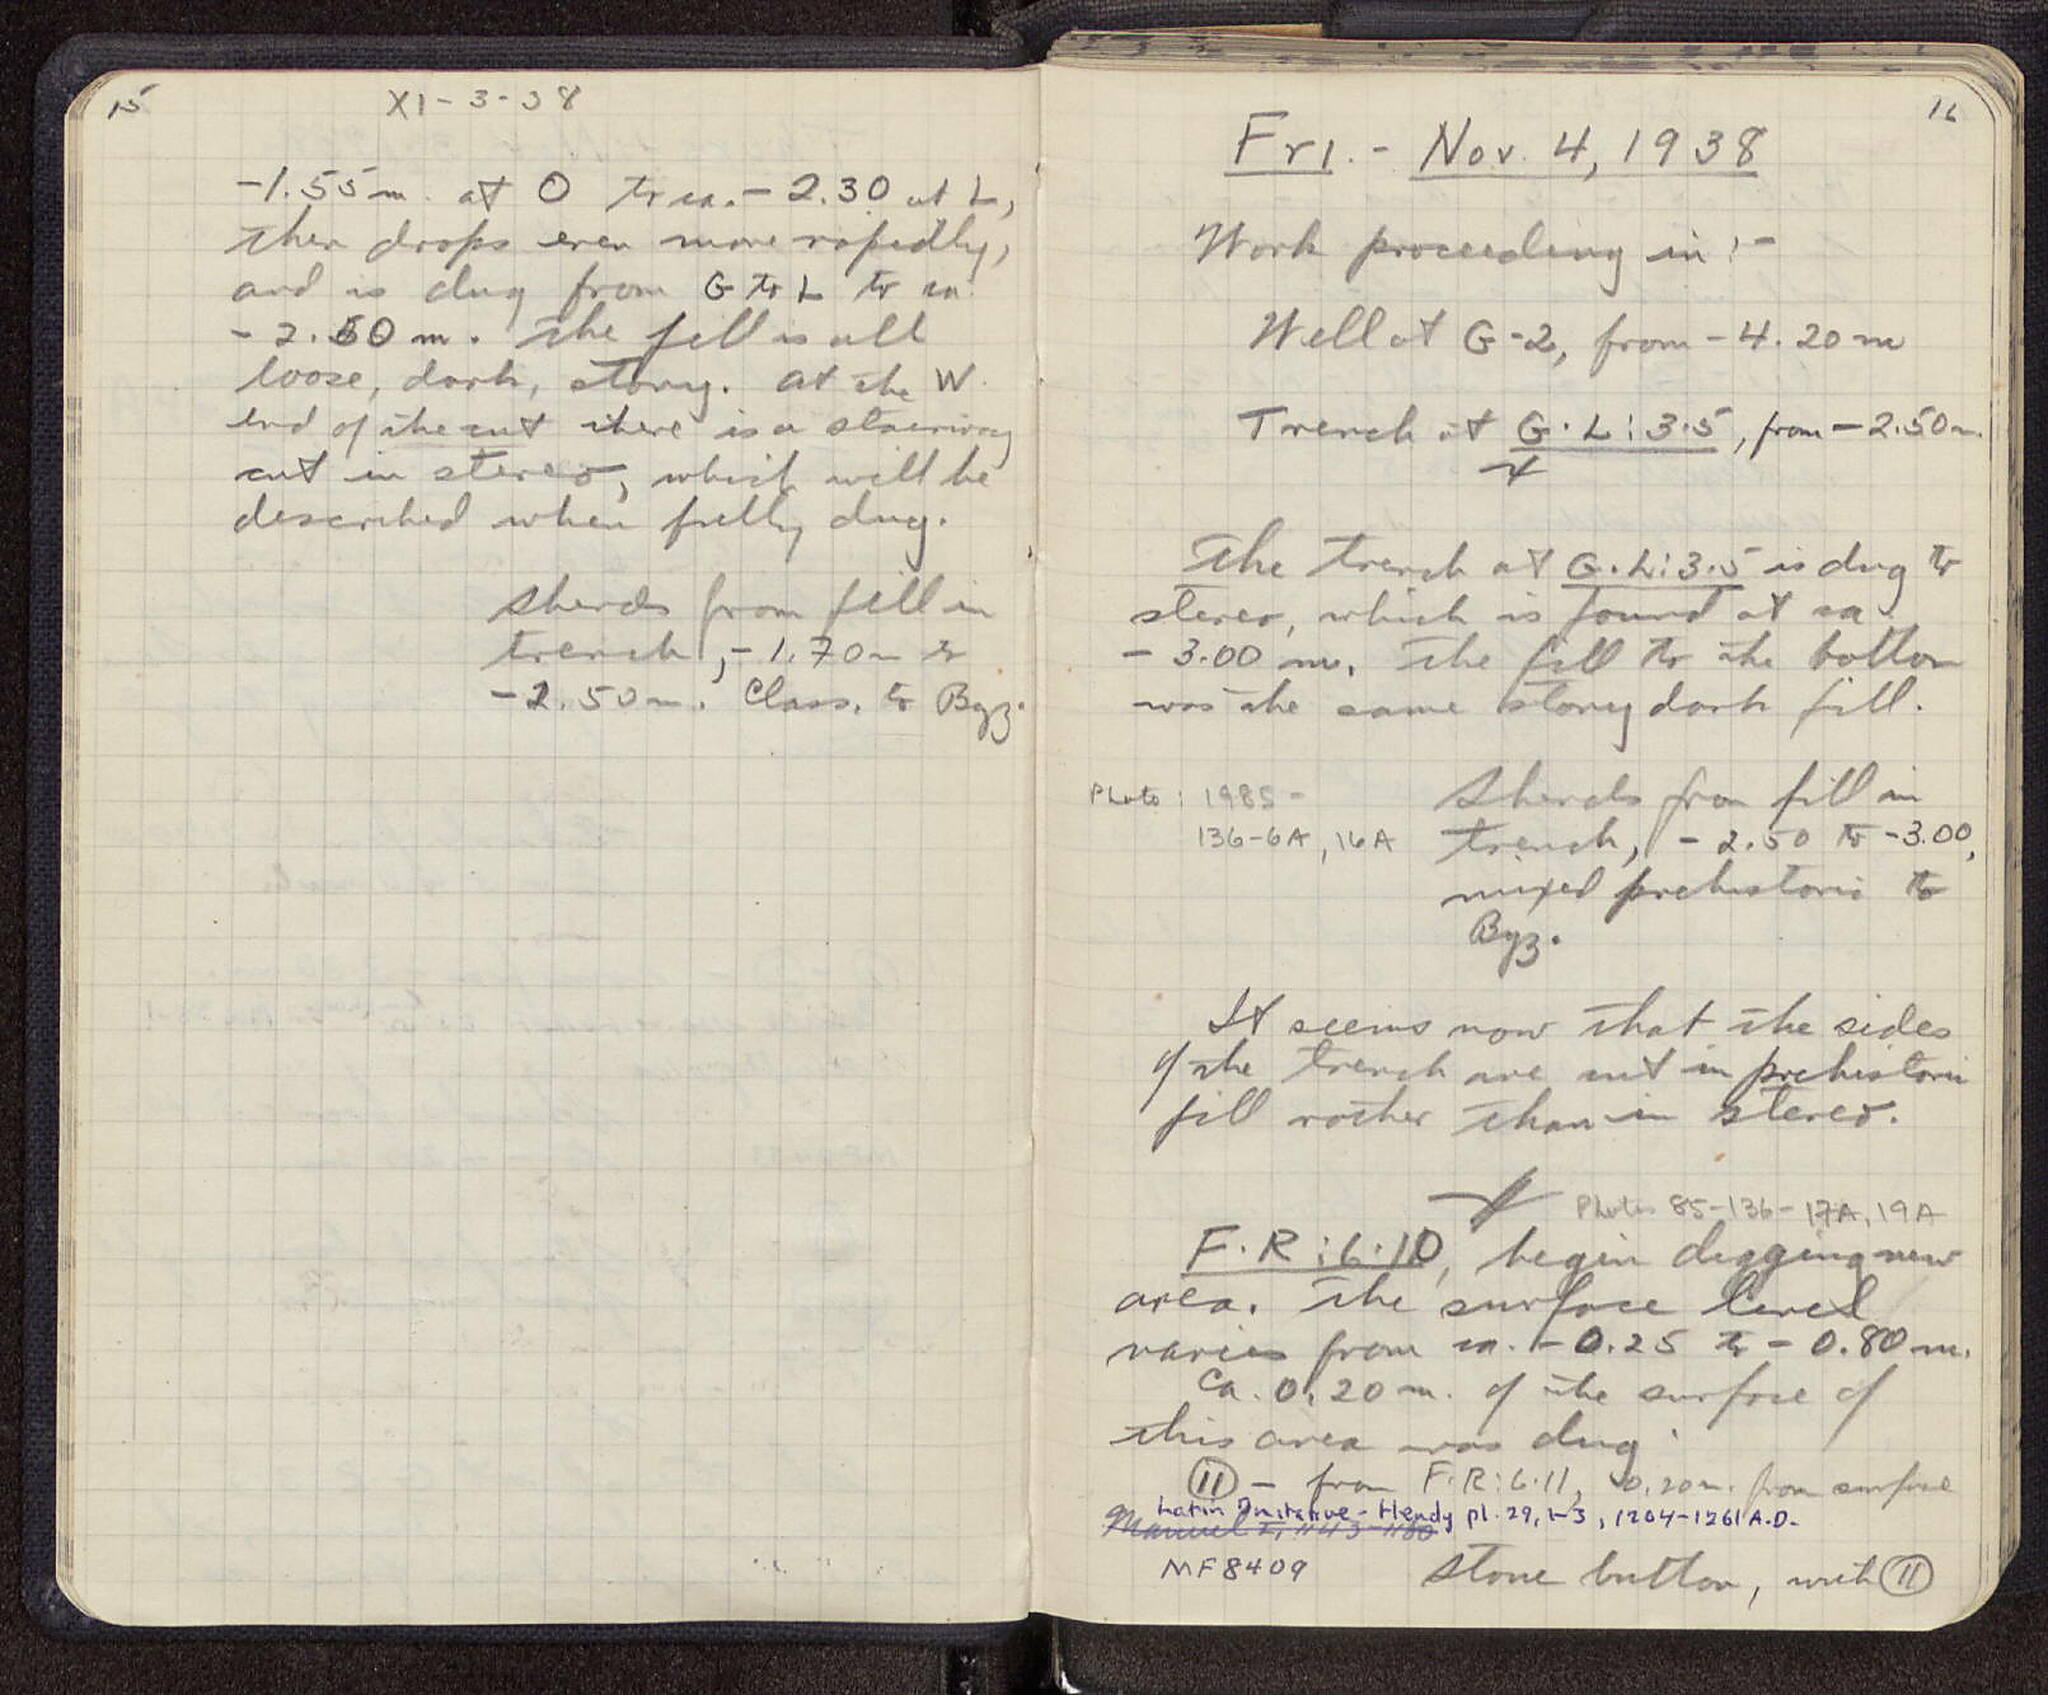 15
XI-3-38
-1.55 m. at O to ca. -2.30 at L,
then drops even more rapidly,
and is dug from G to L to ca.
-2.50 m. The fill is all
loose, dark, stony. At the W.
end of the cut there is a stairway
cut in stereo, which will be
described when fully dug.
Sherds from fill in
trench, -1.70 m to
-2.50 m. Class. to Byz.
16
Fri. - Nov. 4, 1938
Work proceeding in:-
Well at G-2, from -4.20 m
Trench at G·L:3·5, from -2.50 m.
The trench at G·L:3·5 is dug to
stereo, which is found at ca
-3.00 m. The fill to the bottom
was the same stony dark fill.
Photo: 1985-
136-6A, 16A
Sherds from fill in
trench, -2.50 to -3.00,
mixed prehistoric to
Byz.
It seems now that the sides
of the trench are cut in prehistoric
fill rather than in stereo.
Photos 85-136-17A, 19A
F·R:6·10, begin digging new
area. The surface level
varies from ca. -0.25 to -0.80 m.
Ca. 0.20 m. of the surface of
this area was dug.
11 - from F·R:6·11, 0.20 m. from surface
Latin Imitative - Hendy pl. 29, 1-3, 1204-1261 A.D.
Manuel I, 1143-1180
MF8409
Stone button, with 11